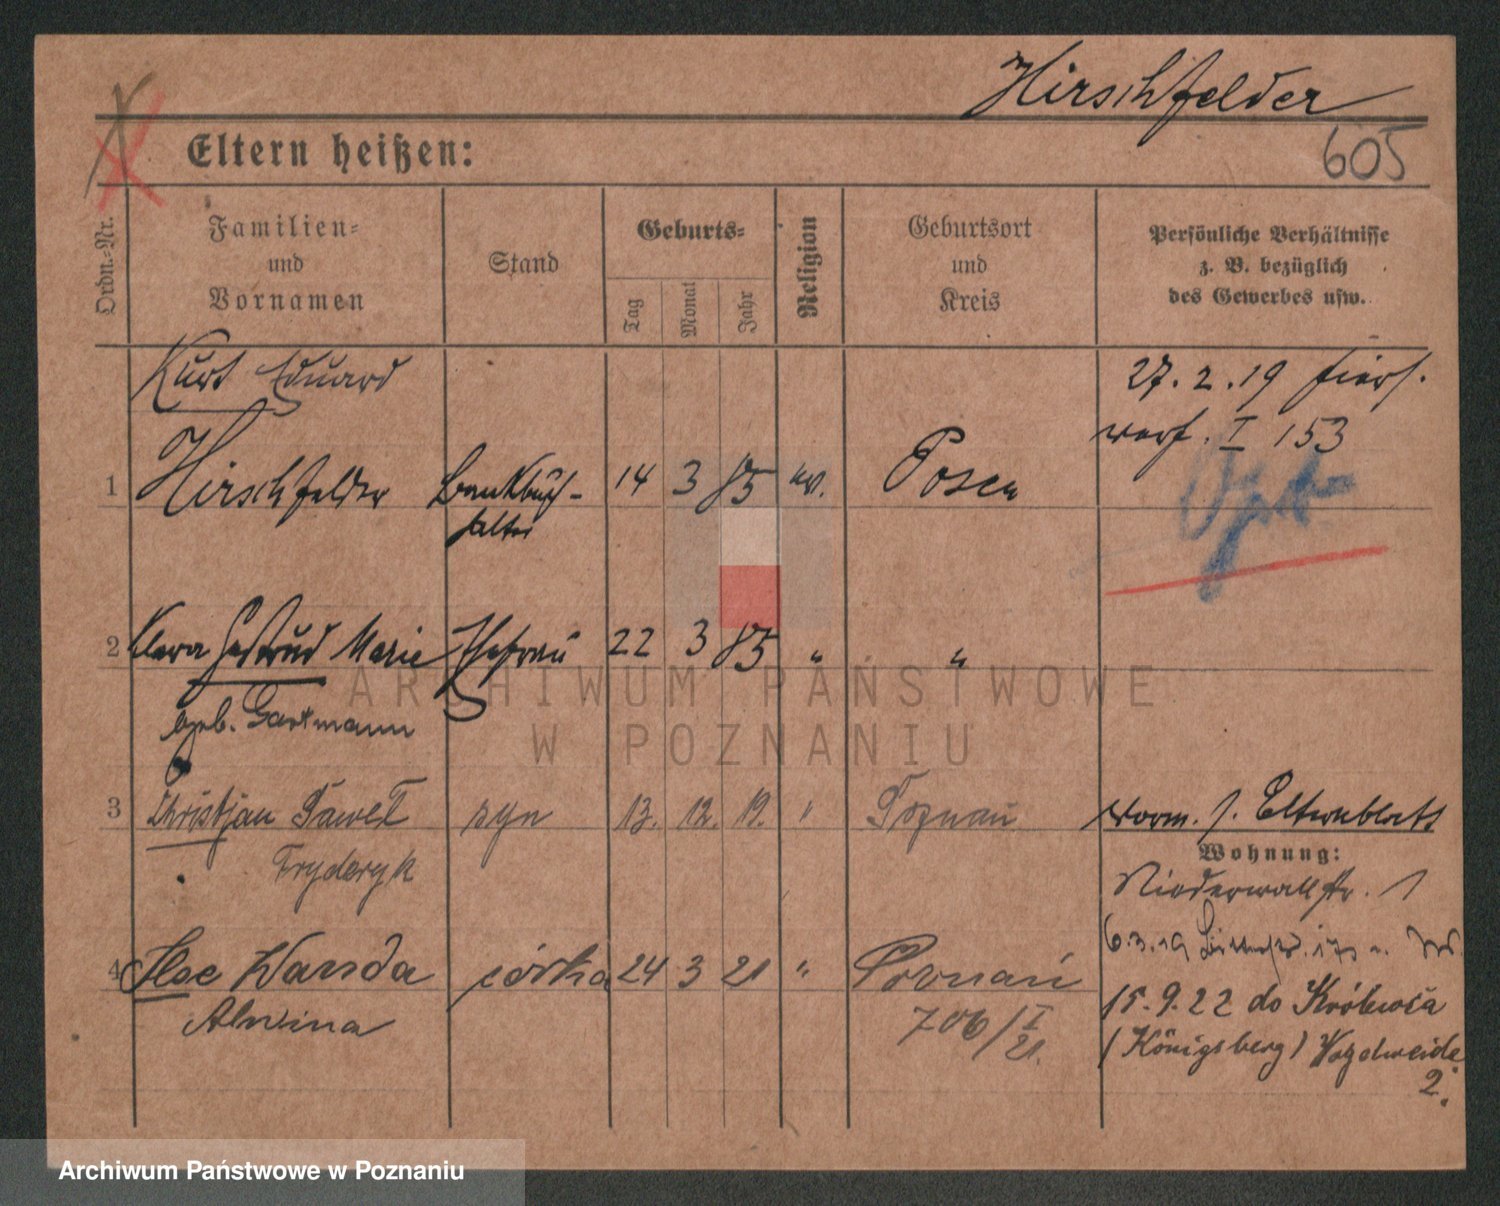 Hirschfelder
605
Eltern heißen:
Ordn.-Nr.
Familien-
und
Vornamen
Stand
Geburts-
Tag
Monat
Jahr
Religion
Geburtsort
und
Kreis
Persönliche Verhältnisse
z. B. bezüglich
des Gewerbes usw.
Kurt Eduard
27. 2. 19
I 153
1 Hirschfelder Bankbuch- 14 3 85 ev. Posen
halter
2 Klara Gertrud Marie Ehefrau 22 3 85 " "
geb. Gartmann
3 Christjan Paweł syn 13. 12. 19. " Poznań
Fryderyk
vorm. s. Elternblatt
Wohnung:
Niederwallstr. 1
4 Ilse Wanda córka 24 3 21 " Poznań
6.3.19
Alwina
706/I
21.
15.9.22 do Królewca
(Königsberg)
2.
ARCHIWUM PAŃSTWOWE
W POZNANIU
Archiwum Państwowe w Poznaniu